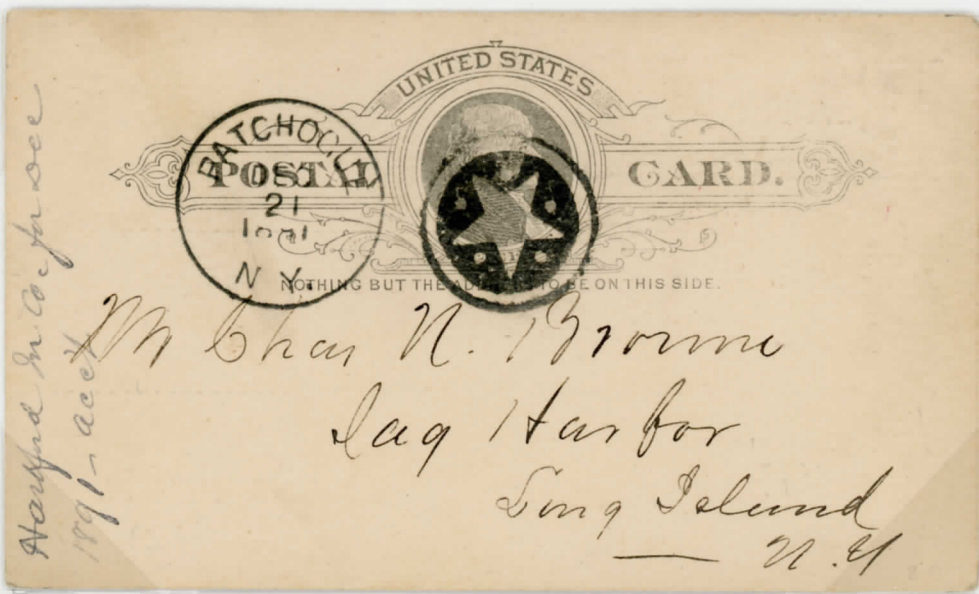 UNITED STATES
POSTAL CARD.
PATCHOGUE
21
N.Y.
NOTHING BUT THE ADDRESS TO BE ON THIS SIDE.
Mr Chas N. Browne
Sag Harbor
Long Island
N.Y
Hartford In Co for Dec
1891 - acc't